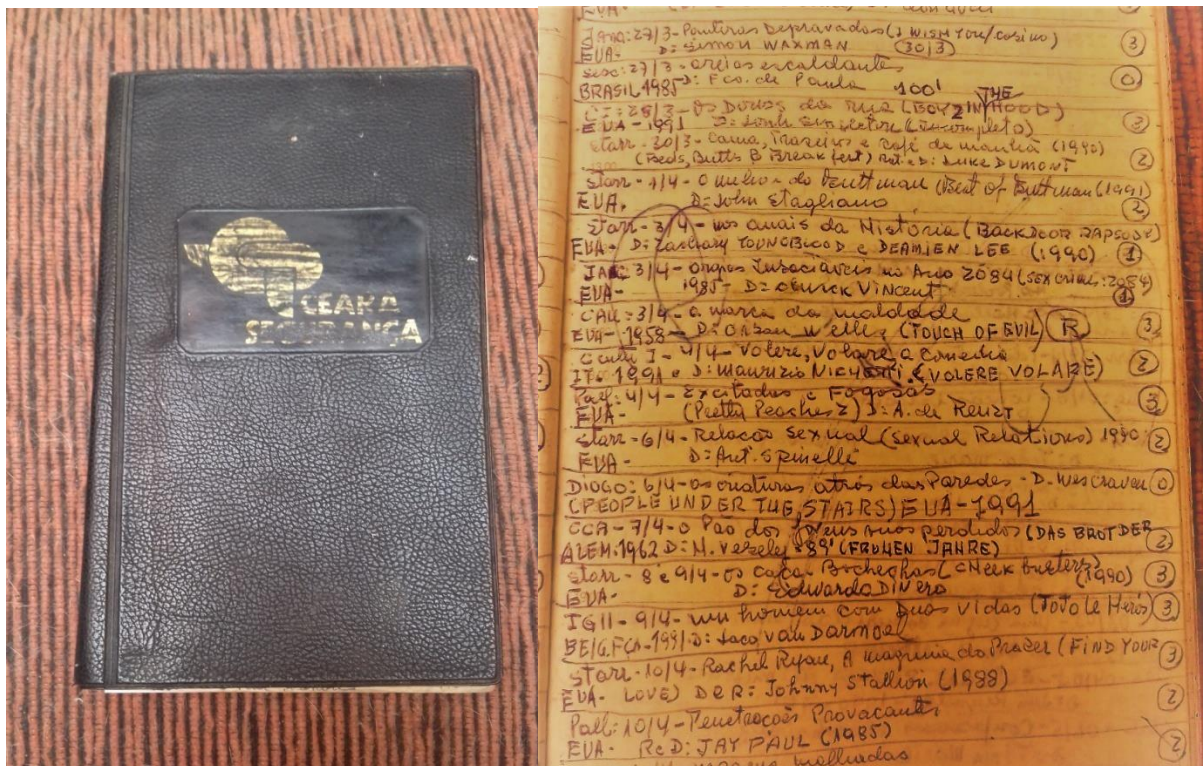 CEARA
SEGURANÇA
EUA-
3
27/3- Panteras Depravadas (I WISH YOU/casino)
EUA- D: SIMON WAXMAN (30/3)
Sesc: 27/3- areias escaldantes
0
BRASIL 1985 D: Fco. de Paula 100'
28/3- os Donos da rua (BOYZ IN THE HOOD)
EUA-1991 D: (incompleto)
3
Starr- 30/3- Cama, Traseiros e café da manhã (1990)
(Beds, Butts & Breakfest) D: LUKE DUMONT
2
Starr- 1/4- O melhor do Buttman (Best of Buttman (1991)
EUA. D: John Stagliano
2
Starr- 3/4- nos anais da História (BACKDOOR RAPSODY)
EUA- D: Zachary YOUNGBLOOD e DEAMIEN LEE (1990) 1
3/4- no Ano 2084 (sex crimes: 2084)
EUA- 1985- D: VINCENT
1
3/4- a marca da maldade
EUA- 1958- D: Orson Welles (TOUCH OF EVIL) R 3
4/4- Volere, Volare a Comédia
ITA-1991 D: Maurizio (VOLERE VOLARE) 2
4/4- Excitadas e Fogosas
EUA- (Pretty Peaches 2) D: A. de Renzy
3
Starr- 6/4- Relação Sexual (Sexual Relations) 1990 2
EUA- D: Ant. Spinelli
DIOGO: 6/4- as criaturas atrás das Paredes- D. Wes Craven 0
(PEOPLE UNDER THE STAIRS) EUA-1991
CCA- 7/4- o Pão dos perdidos (DAS BROT DER
ALEM. 1962 D: 89' (FRUHEN JAHRE) 2
Starr- 8 e 9/4- os caça- Bochechas (CHEEK busters)
(1990) 3
EUA- D: Edwardo DINERO
9/4- um homem com Duas Vidas (Toto le Heros) 3
BELG. FÇA-1991 D: Jaco Van Darmael
Starr- 10/4- Rachel Ryan, A maquina do Prazer (FIND YOUR 3
EUA- LOVE) D e R: Johnny Stallion (1988)
Pall: 10/4- Penetrações Provocantes
2
EUA- R e D: JAY PAUL (1985)
molhadas
2